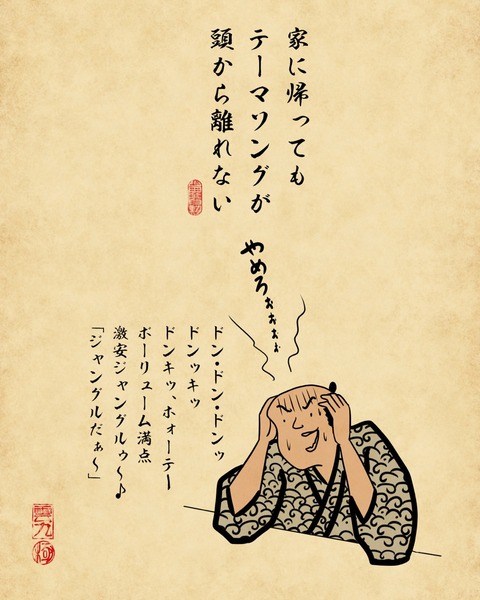 家に帰っても
テーマソングが
頭から離れない
やめろぉぉぉぉぉ
ドン・ドン・ドンッ
ドンッキッ
ドンキッ、ホォーテー
ボーリューム満点
激安ジャングルゥ〜♪
「ジャングルだぁ〜」